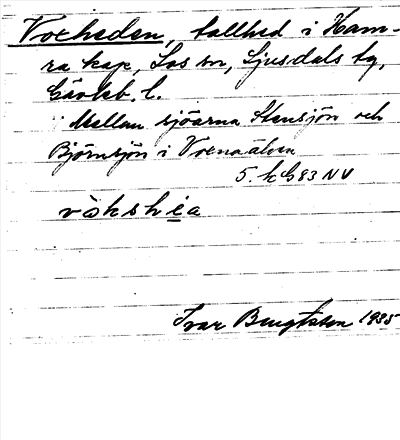 Voxheden, tallhed i Ham-
ra kap, Los sn, Ljusdals tg,
Gävleb. l.
Mellan sjöarna Stensjön och
Björnsjön i Voxnaälven
5. h G 83 NV
vòkshèa
Ivar Bengtsson 1935